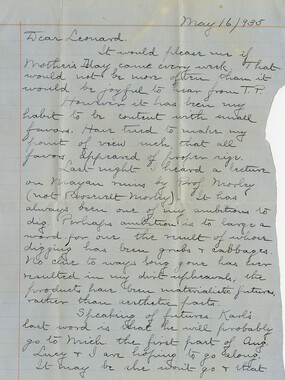 May 16/935
Dear Leonard.
It would please me if
Mother's Day came every week. That
would not be more often than it
would be joyful to hear from T.P.
However it has been my
habit to be content with small
favors. Have tried to make my
point of view such that all
favors appeared of proper size.
Last night I heard a lecture
on Mayan ruins by Prof Morley
(not Roosevelt Morley). It has
always been one of my ambitions to
dig. Perhaps ambition is to large a
word for one the result of whose
digging has been gourds & cabbages.
No clue to ways long gone has ever
resulted in my dirt upheavals, the
products have been materialistic futures
rather than aesthetic pasts.
Speaking of futures Karl's
last word is that he will probably
go to Mich the first part of Aug.
Lucy & I are hoping to go along.
It may be she won't go & that